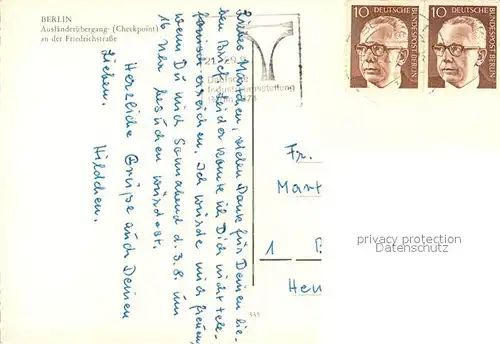 BERLIN
Ausländerübergang- (Checkpoint)
an der Friedrichstraße
Liebes Martchen, vielen Dank für Deinen lie-
ben Brief. Leider konnte ich Dich nicht tele-
fonisch erreichen. Ich würde mich freuen,
wenn Du mich Sonnabend d. 3.8. um
16 Uhr besuchen würdest.
Herzliche Grüße auch Deinen
Lieben.
Hildchen.
Deutsche
Industrieausstellung
10 DEUTSCHE BUNDESPOST BERLIN
10 DEUTSCHE BUNDESPOST BERLIN
Fr.
Mart
1 B
privacy protection
Datenschutz